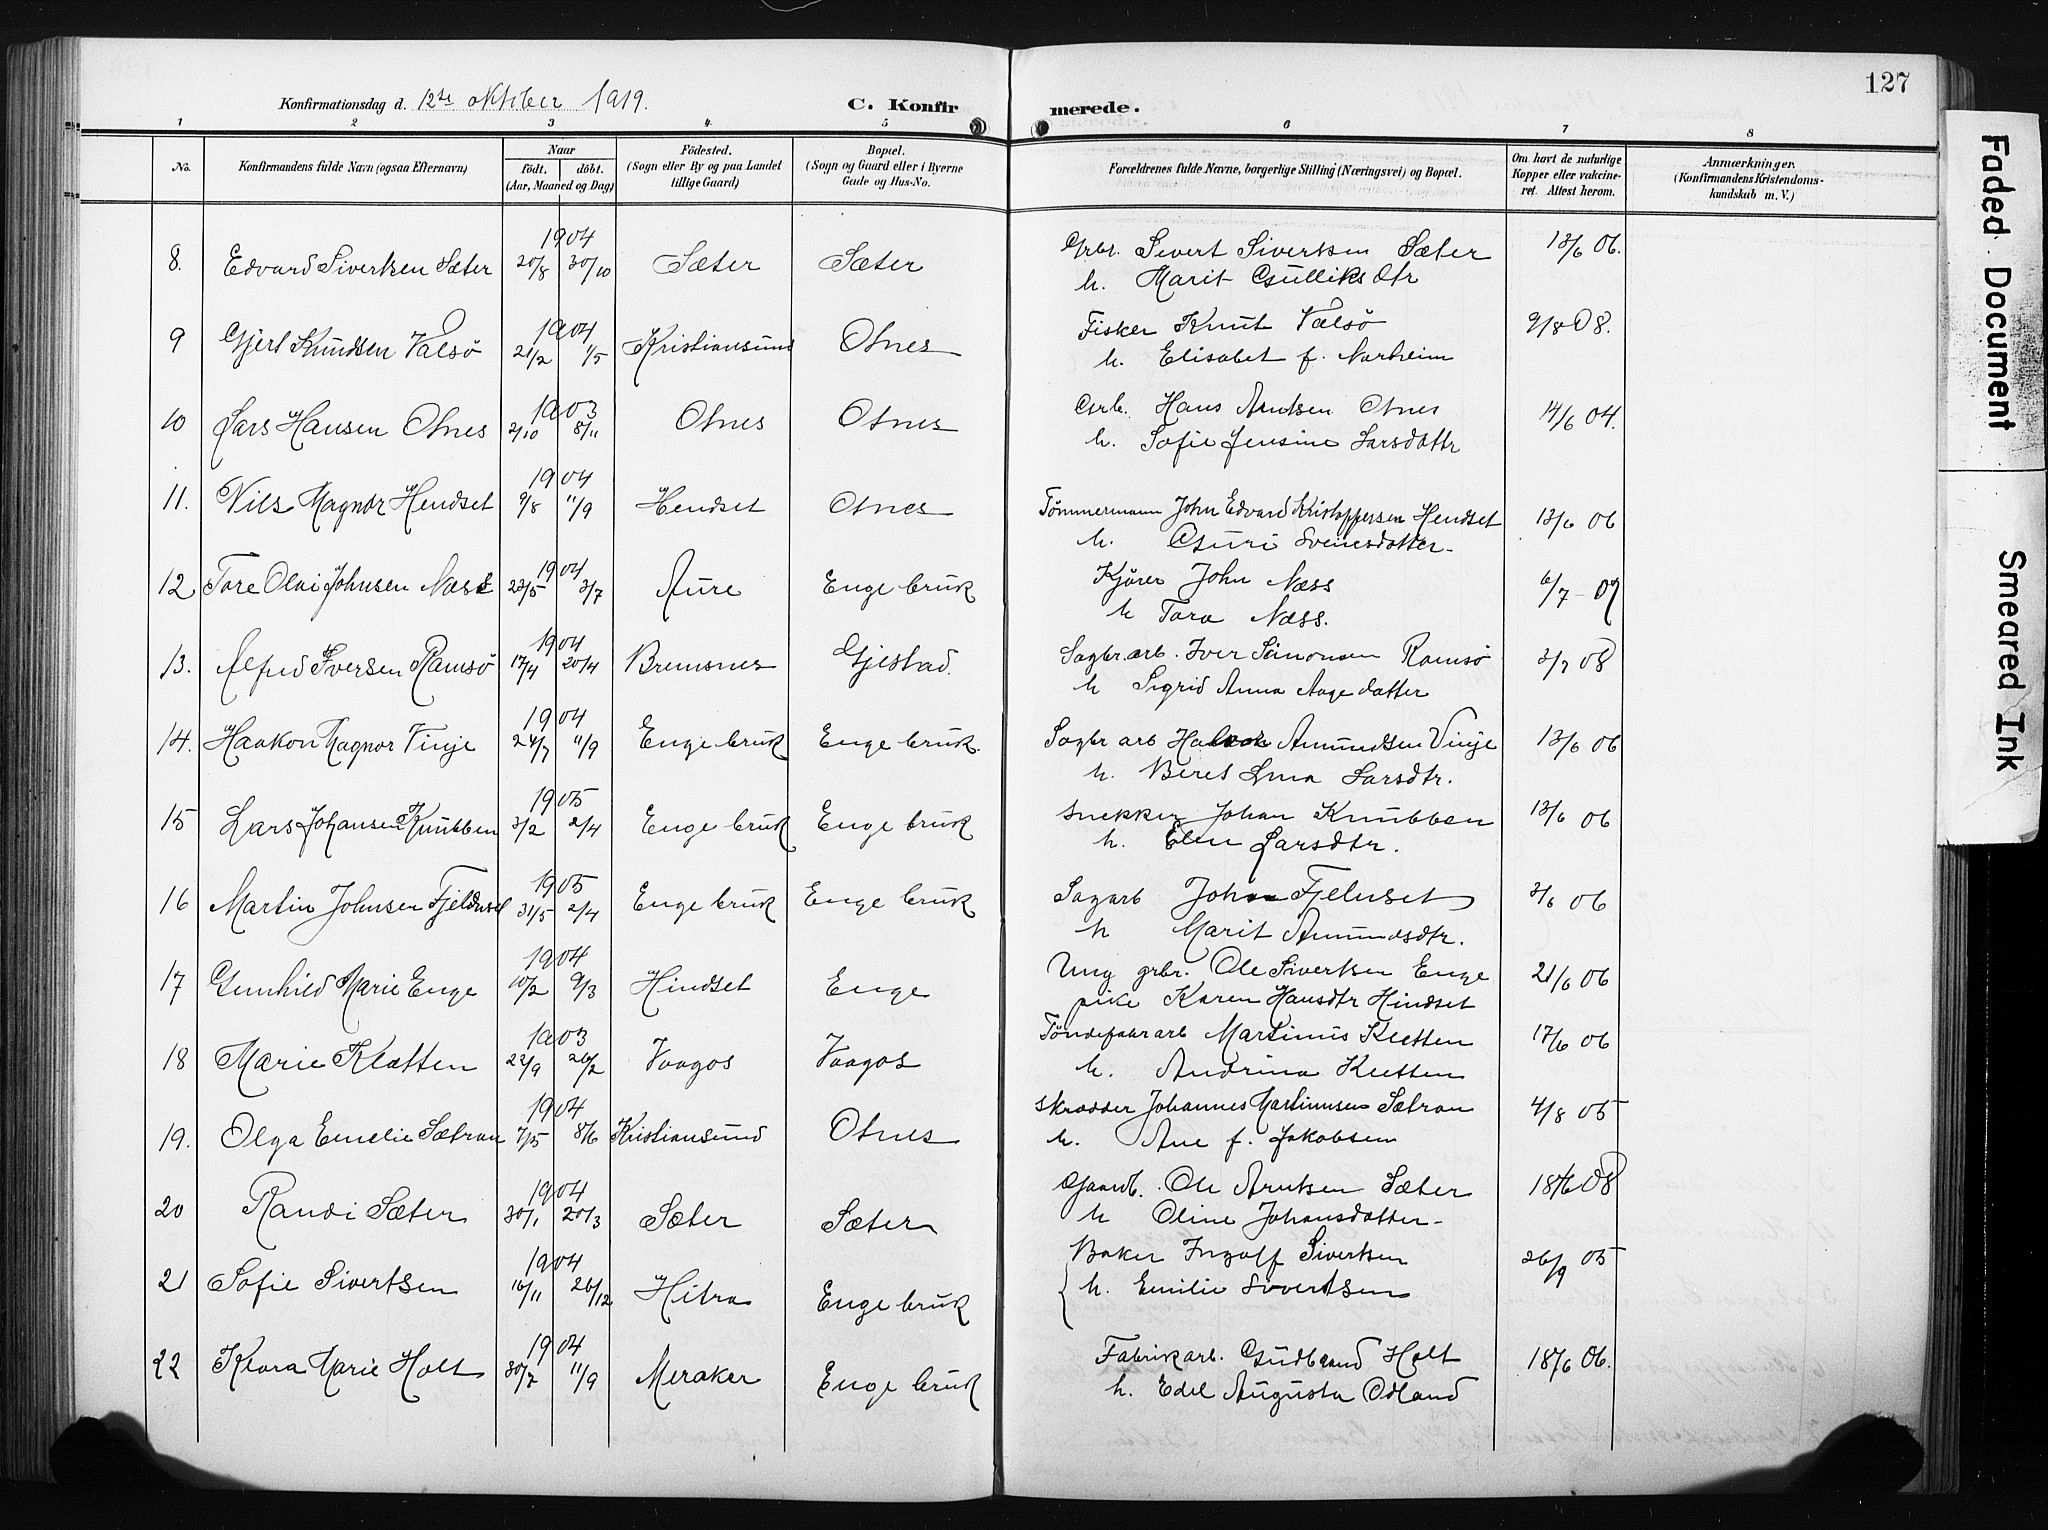 127
Konfirmationsdag d. 12te oktober 1919. C. Konfirmerede.
1 2 3 4 5 6 7 8
No. Konfirmandens fulde Navn (ogsaa Efternavn) Naar födt. döbt. (Aar, Maaned og Dag) Födested. (Sogn eller By og paa Landet tillige Gaard) Bopæl. (Sogn og Gaard eller i Byerne Gade og Hus-No. Forældrenes fulde Navne, borgerlige Stilling (Næringsvei) og Bopæl. Om havt de naturlige Kopper eller vakcineret. Attest herom. Anmærkninger. (Konfirmandens Kristendomskundskab m. V.)
8. Edvard Sivertsen Sæter 1904 20/8 30/10 Sæter Sæter Grbr. Sivert Sivertsen Sæter 13/6 06.
h. Marit Gulliksdtr
9 Gjert Knudsen Valsö 1904 21/2 1/5 Kristiansund Otnes Fisker Knut Valsö 9/8 08.
h. Elisabet f. Norheim
10 Lars Hansen Otnes 1903 2/10 8/11 Otnes Otnes Grb. Hans Arntsen Otnes 14/6 04.
h. Sofie Jensine Larsdattr
11. Nils Magnor Hendset 1904 9/8 11/9 Hendset Otnes Tømmermann John Edvard Kristoppersen Hendset 13/6 06
h. Guri Sveinsdatter
12 Tore Olai Johnsen Næss 1904 23/5 3/7 Aure Enge bruk Kjörer John Næss 6/7 - 07
h Tora Næss.
13. Alfred Iversen Ramsö 1904 17/4 20/4 Bremsnes Gjelstad. Sagbr.arb. Iver Simonsen Ramsö 3/7 08
h Sigrid Anna Aagedatter
14. Haakon Magnor Vinje 1904 24/7 11/9 Enge bruk Enge bruk. Sagbr arb Halvor Amundsen Vinje 13/6 06
h. Beret Larsdtr.
15 Lars Johansen Knubben 1905 3/2 2/4 Enge bruk Enge bruk Snekker Johan Knubben 13/6 06
h. Elen Larsdtr.
16 Martin Johnsen Fjeldnset 1905 31/5 2/4 Enge bruk Enge bruk Sagarb John Fjelnset 3/6 06
h Marit Amundsdtr.
17 Gunhild Marie Enge 1904 10/2 9/3 Hindset Enge Ung grbr. Ole Sivertsen Enge 21/6 06
pike Karen Hansdtr Hindset
18 Marie Kletten 1903 22/9 26/2 Vaagos Vaagos Töndefabr arb Martinus Kletten 17/6 06
h. Andrina Kletten
19. Olga Emelie Sætran 1904 7/5 8/6 Kristiansund Otnes Skrædder Johannes Martinusen Sætran 4/8 05
h. Ane f. Jakobsen
20 Randi Sæter 1904 30/1 20/3 Sæter Sæter Gaardb. Ole Arntsen Sæter 18/6 08
h Oline Johansdatter
21 Sofie Sivertsen 1904 16/11 26/12 Hitra Enge bruk Baker Ingolf Sivertsen 26/9 05
h. Emilie Sivertsen
22 Klara Marie Holt 1904 30/7 11/9 Meraker Enge bruk Fabrikarb. Gudbrand Holt 18/6 06.
h. Edel Augusta Odland
Faded Document
Smeared Ink